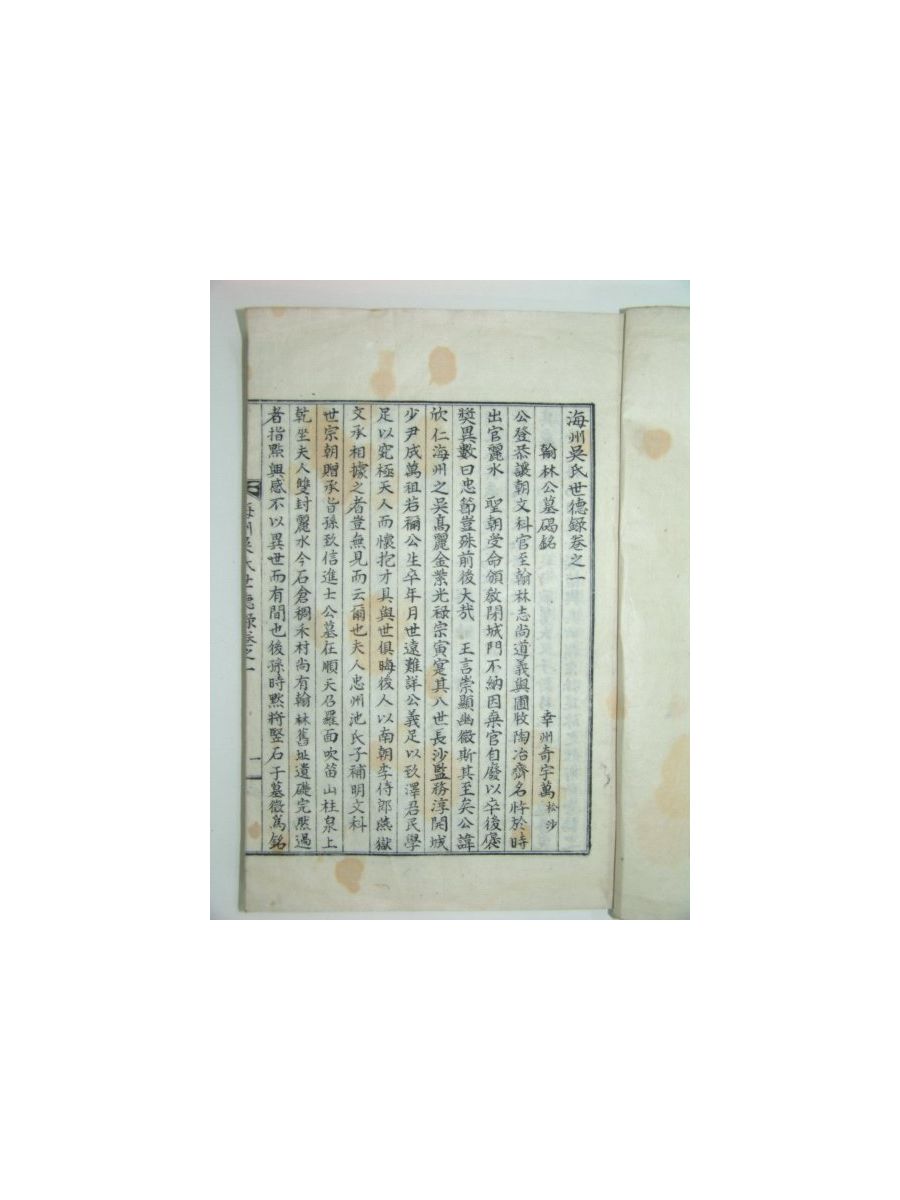 海州吳氏世德錄卷之一
翰林公墓碣銘 幸州奇宇萬松沙
公登恭讓朝文科官至翰林志尚道義與圃牧陶冶齊名將於時
出官麗水 聖朝受命頒敎閉城門不納因棄官自廢以卒後褒
奬異數曰忠節豈殊前後大哉 王言崇顯幽微斯其至矣公諱
欣仁海州之吳高麗金紫光祿宗寅寔其八世長沙監務淳開城
少尹成萬祖若禰公生卒年月世遠難詳公義足以致澤君民學
足以究極天人而懷抱才具與世俱晦後人以南朝李侍郎燕獄
文承相據之者豈無見而云爾也夫人忠州池氏子補明文科
世宗朝贈承旨孫致信進士公墓在順天召羅面吹笛山柱泉上
乾坐夫人雙封麗水今石倉稠禾村尚有翰林舊址遺礎完然過
者指點興感不以異世而有間也後孫時默將竪石于墓徵萬銘
海州吳氏世德錄卷之一 一